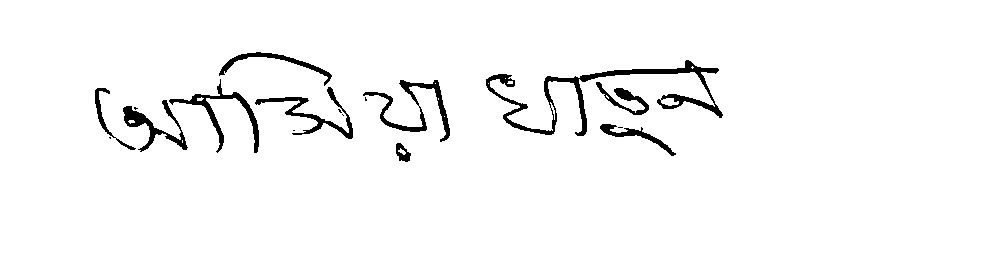 আছিয়া খাতুন